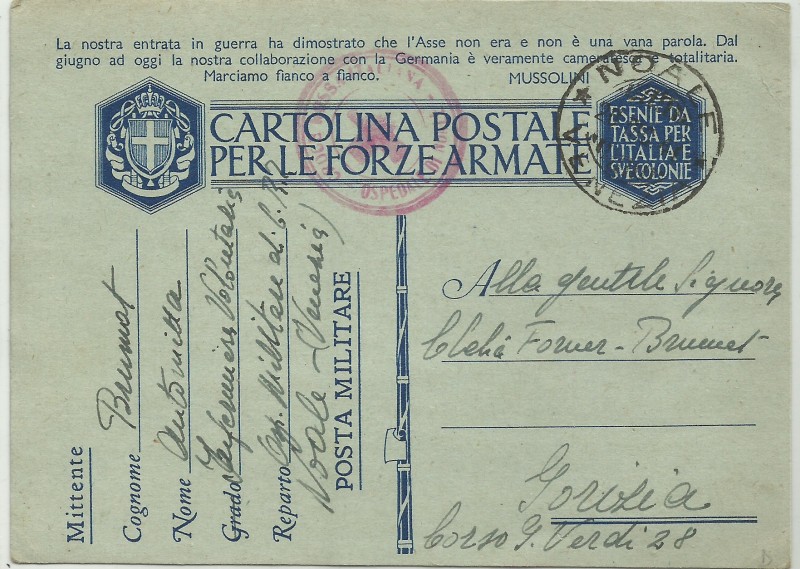 La nostra entrata in guerra ha dimostrato che l'Asse non era e non è una vana parola. Dal
giugno ad oggi la nostra collaborazione con la Germania è veramente cameratesca e totalitaria.
Marciamo fianco a fianco. MUSSOLINI
CARTOLINA POSTALE
PER LE FORZE ARMATE
ESENTE DA
TASSA PER
L'ITALIA E
SVE COLONIE
NOALE
VENEZIA
OSPEDALE DI
Mittente
Cognome Brumat
Nome Antonietta
Grado Infermiera Volontaria
Reparto Osp. Militare di C. R.
Noale - (Venezia)
POSTA MILITARE
Alla gentile Signora
Clelia Forner - Brumat
Gorizia
Corso G. Verdi 28
D